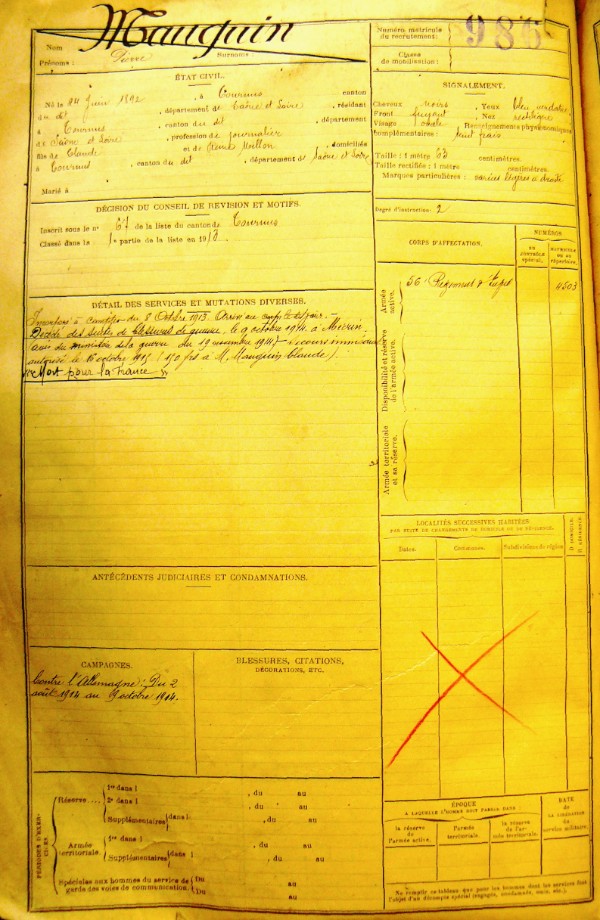 Nom Mauguin
Prénoms : Pierre Surnoms :
Numéro matricule du recrutement : 986
Classe de mobilisation :
ÉTAT CIVIL.
Né le 24 Juin 1892, à Tournus, canton
du dit, département de Saône et Loire, résidant
à Tournus, canton du dit, département
de Saône et Loire, profession de journalier
fils de Claude et de domiciliés
à Tournus, canton du dit, département de Saône et Loire
Marié à
SIGNALEMENT.
Cheveux noirs, Yeux bleu
Front fuyant, Nez rectiligne
Visage ovale Renseignements physionomiques
complémentaires : teint frais
Taille : 1 mètre centimètres.
Taille rectifiée : 1 mètre centimètres.
Marques particulières : à droite
Degré d'instruction : 2
DÉCISION DU CONSEIL DE REVISION ET MOTIFS.
Inscrit sous le n° 67 de la liste du canton de Tournus
Classé dans la 1e partie de la liste en 1913.
DÉTAIL DES SERVICES ET MUTATIONS DIVERSES.
Incorporé à compter du 8 Octobre 1913. Arrivé au corps le dit jour.
Décédé des suites de blessures de guerre, le 9 octobre 1914 à
(avis du ministère de la guerre du 19 novembre 1914) - Secours immédiat
le 16 octobre 1915 (150 frs à M. Mauguin Claude).
"Mort pour la France"
CORPS D'AFFECTATION.
NUMÉROS
au contrôle spécial.
matricule ou au répertoire.
Armée active.
56e Régiment d'Inf. 4503
Disponibilité et réserve de l'armée active.
Armée territoriale et sa réserve.
LOCALITÉS SUCCESSIVES HABITÉES
PAR SUITE DE CHANGEMENTS DE DOMICILE OU DE RÉSIDENCE.
Dates. Communes. Subdivisions de région D. domicile. R. résidence.
ANTÉCÉDENTS JUDICIAIRES ET CONDAMNATIONS.
CAMPAGNES.
Contre l'Allemagne : Du 2
août 1914 au 9 octobre 1914.
BLESSURES, CITATIONS,
DÉCORATIONS, ETC.
PÉRIODES D'EXERCICES.
Réserve....
1re dans l , du au
2e dans l , du au
Supplémentaires dans l , du au
Armée territoriale.
1re dans l , du au
Supplémentaires dans l , du au
Spéciales aux hommes du service de garde des voies de communication.
Du au
Du au
ÉPOQUE
À LAQUELLE L'HOMME DOIT PASSER DANS
la réserve de l'armée active.
l'armée territoriale.
la réserve de l'armée territoriale.
DATE
DE
LA LIBÉRATION
DU
service militaire.
Ne remplir ce tableau que pour les hommes dont les services font
l'objet d'un décompte spécial (engagés, condamnés, omis, etc.).